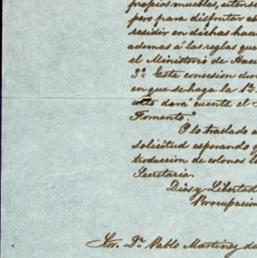 propios muebles, utens
pero para disfrutar de
residir en dichas hac
ademas á las reglas que
el Ministerio de Hac
3ª Esta concesion du
en que se haga la 1ª
dará cuenta el
Fomento."
Y lo traslado a
solicitud esperando q
troduccion de colonos
Secretaria.
Dios y Libertad
Sor. Dn. Pablo Martinez d